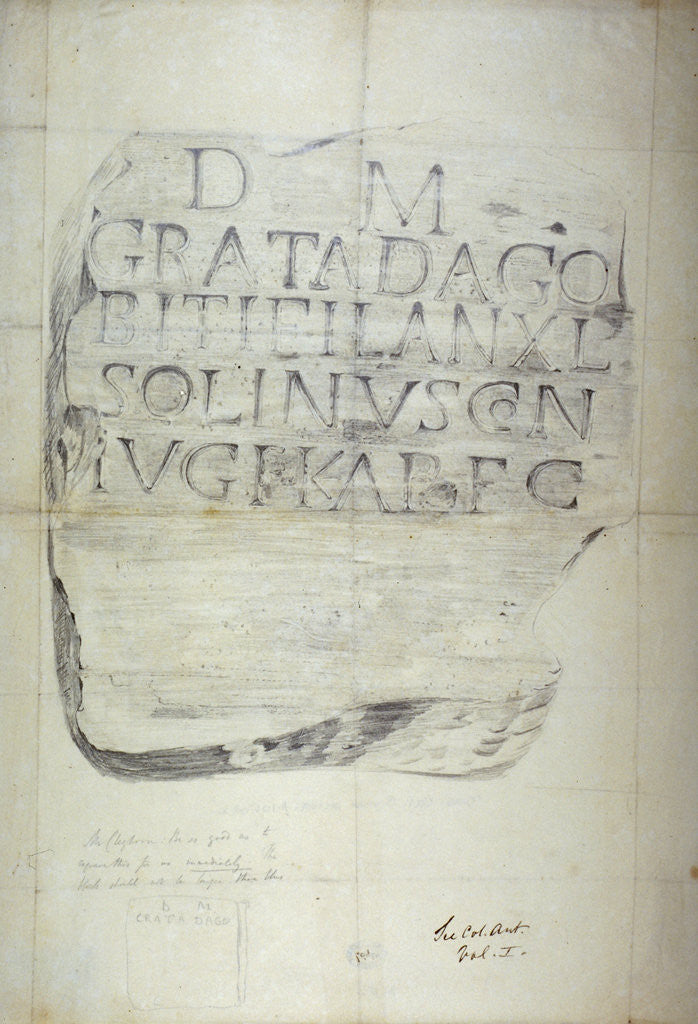 D M
GRATA DAGO
BITI FIL AN XL
SOLINVS CON
IVGI KAR F C
Mr Cleghorn. Be so good as to
engrave this for us immediately The
block should not be larger than this
D M
GRATA DAGO
See Col. Ant.
Vol. I.